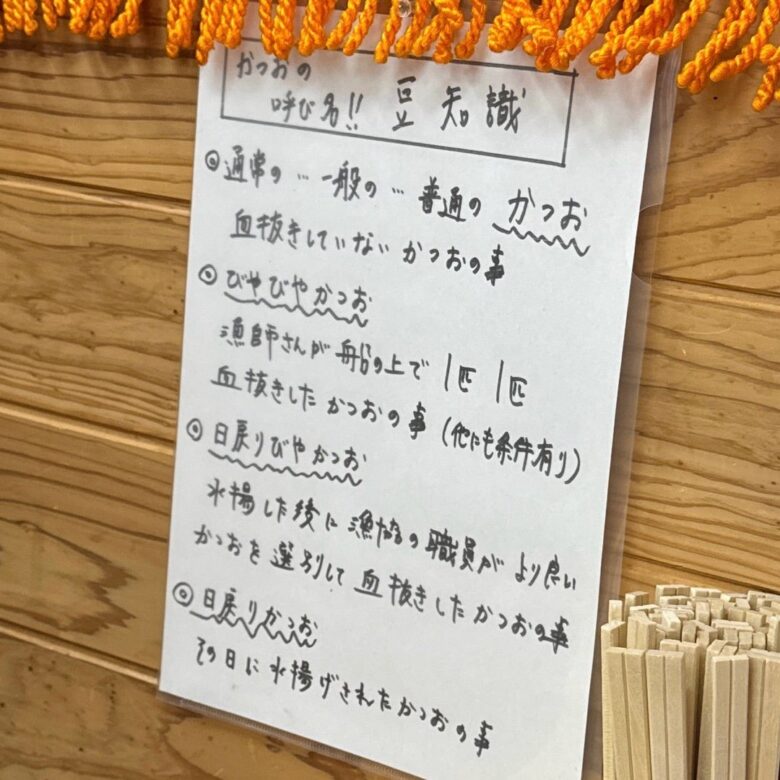 かつおの
呼び名!! 豆知識
◎通常の…一般の…普通の かつお
血抜きしていない かつおの事
◎びやびやかつお
漁師さんが船の上で 1匹 1匹
血抜きした かつおの事 (他にも条件有り)
◎日戻りびやかつお
水揚した後に漁協の職員が より良い
かつおを選別して血抜きしたかつおの事
◎日戻りかつお
その日に水揚げされたかつおの事